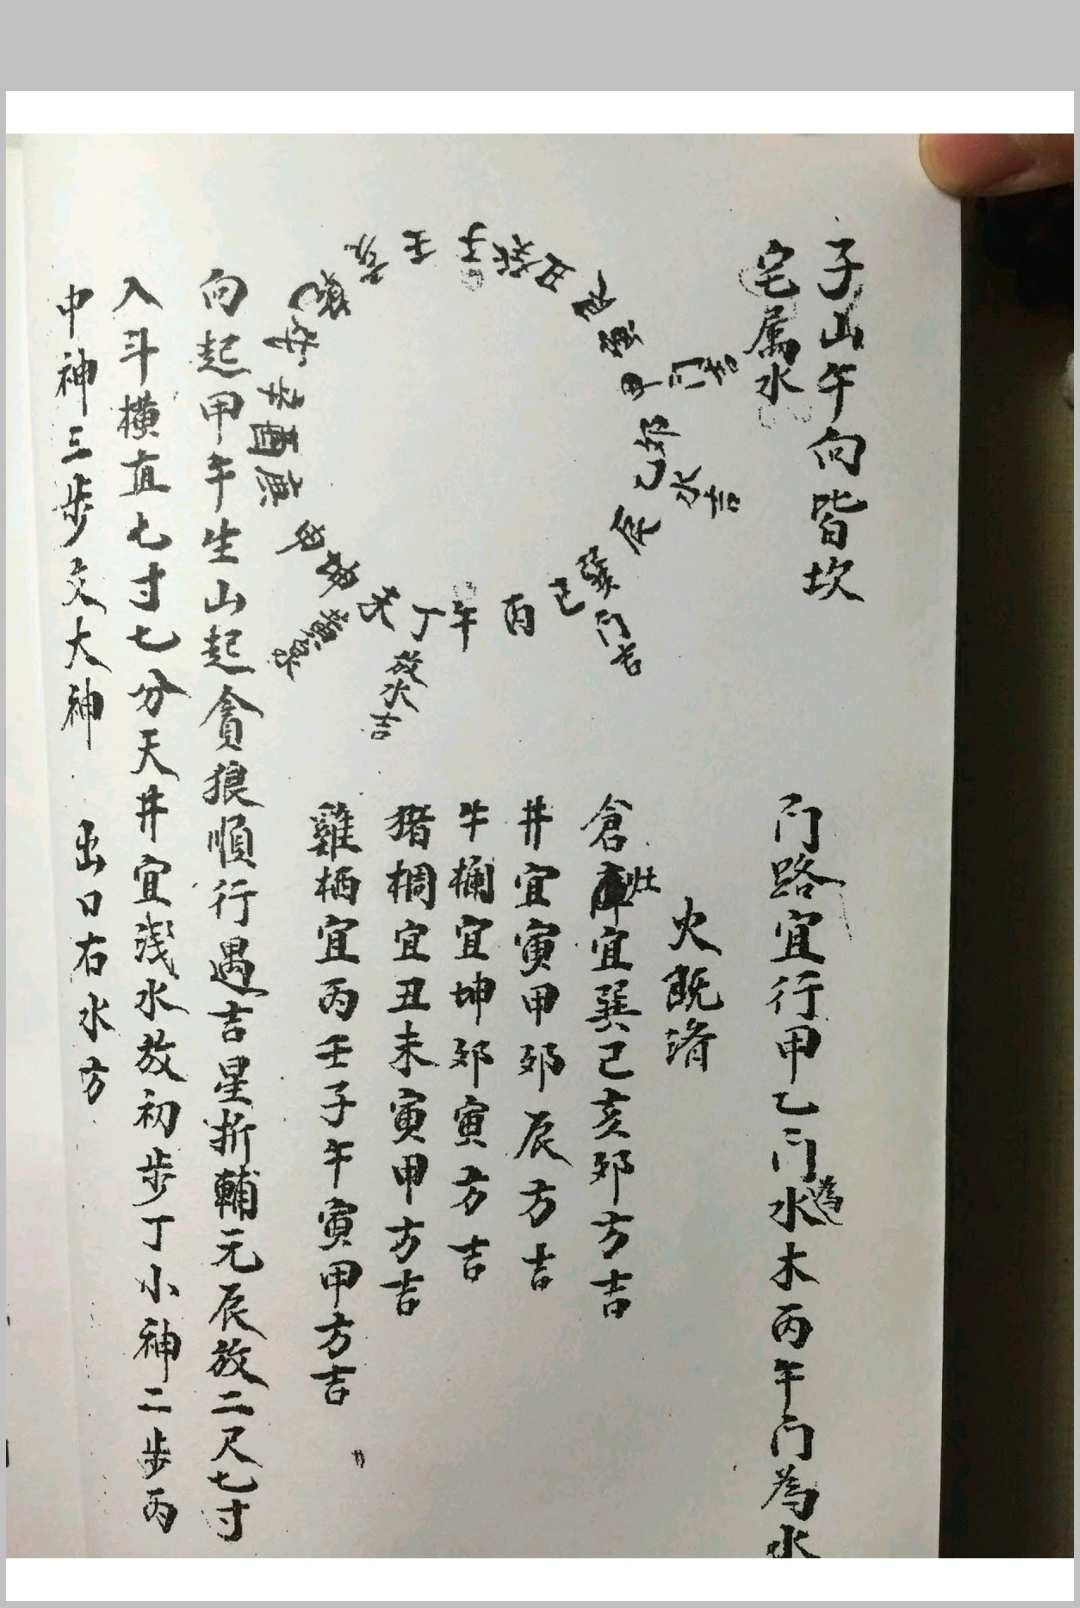 子山午向皆坎
宅属水
門路宜行甲乙门為水木丙午门為水
火既済
倉庫灶宜巽己亥卯方吉
井宜寅甲卯辰方吉
牛欄宜坤卯寅方吉
猪椆宜丑未寅甲方吉
雞栖宜丙壬子午寅甲方吉
子
癸
丑
艮
寅
甲
门吉
卯
乙
水吉
辰
巽
门吉
己
丙
午
丁
放水吉
未
庚
酉
辛
亥
壬
向起甲午生山起貪狼順行遇吉星折輔元辰放二尺七寸
入斗横直七寸七分天井宜浅水放初步丁小神二步丙
中神三步交大神 出口右水方